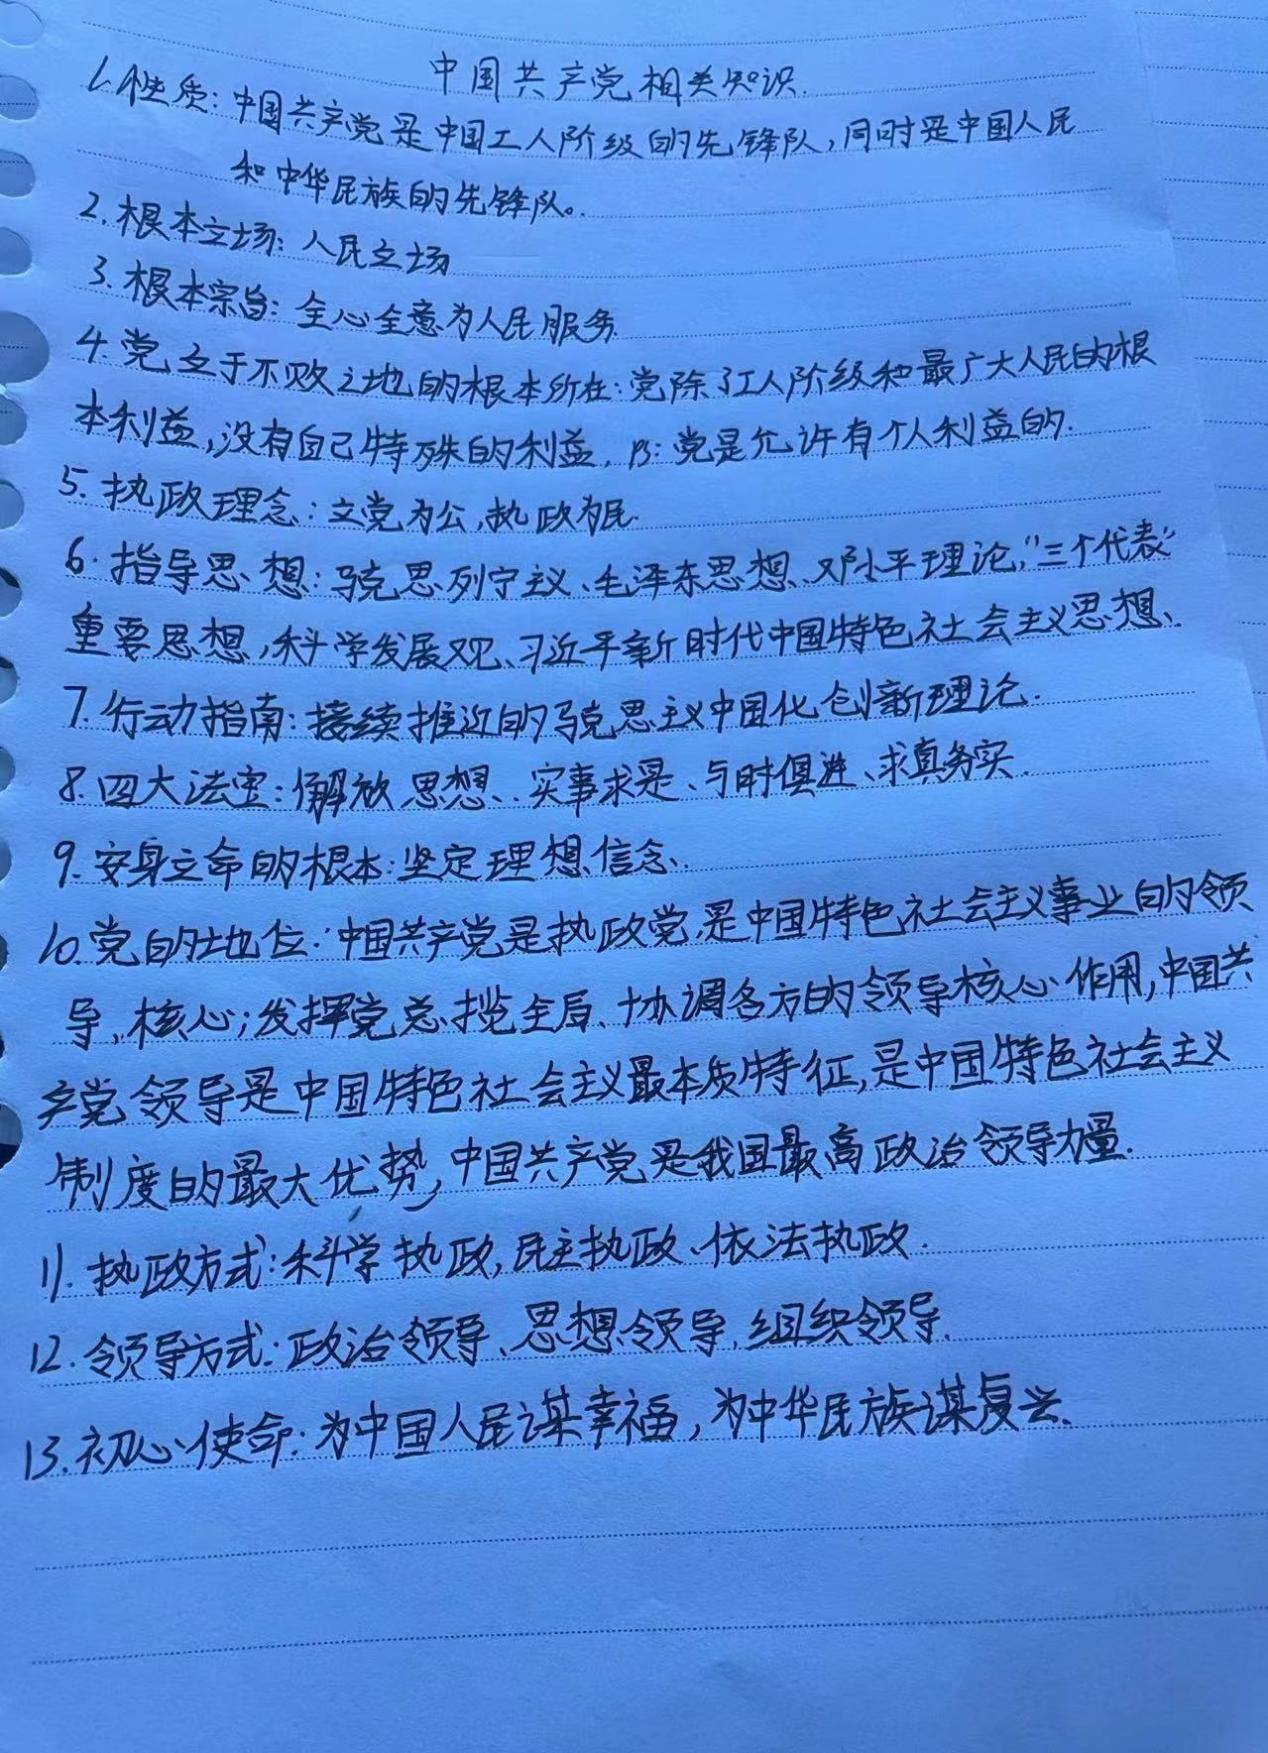 中国共产党相关知识.
1.性质:中国共产党是中国工人阶级的先锋队,同时是中国人民
和中华民族的先锋队。
2.根本立场:人民立场
3.根本宗旨:全心全意为人民服务.
4.党立于不败之地的根本所在:党除了工人阶级和最广大人民的根
本利益,没有自己特殊的利益. 党是允许有个人利益的.
5.执政理念:立党为公,执政为民.
6.指导思想:马克思列宁主义、毛泽东思想、邓小平理论,"三个代表"
重要思想,科学发展观、习近平新时代中国特色社会主义思想、
7.行动指南:接续推近的马克思主义中国化创新理论.
8.四大法宝:解放思想、实事求是、与时俱进、求真务实.
9.安身立命的根本:坚定理想信念、
10.党的地位:中国共产党是执政党,是中国特色社会主义事业的领
导,核心;发挥党总揽全局、协调各方的领导核心作用,中国共
产党领导是中国特色社会主义最本质特征,是中国特色社会主义
制度的最大优势,中国共产党是我国最高政治领导力量.
11.执政方式:科学执政,民主执政、依法执政.
12.领导方式:政治领导、思想领导,组织领导.
13.初心使命:为中国人民谋幸福,为中华民族谋复兴.